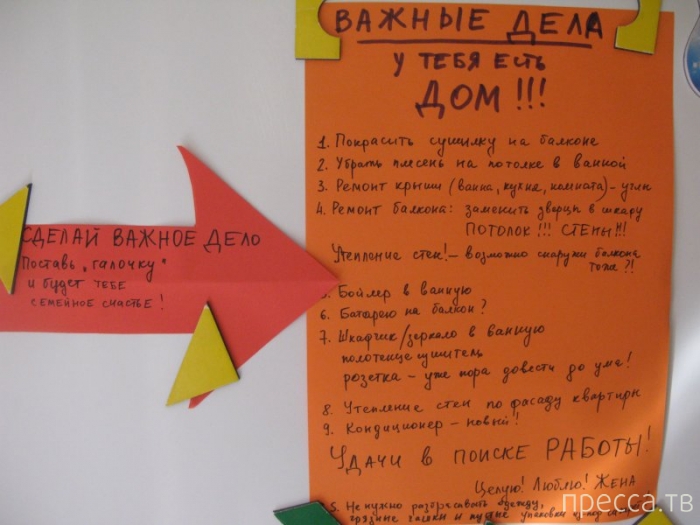 ВАЖНЫЕ ДЕЛА
У ТЕБЯ ЕСТЬ
ДОМ!!!
1. Покрасить сушилку на балконе
2. Убрать плесень на потолке в ванной
3. Ремонт крыши (ванна, кухня, комната) – углы
4. Ремонт балкона: заменить дверцы в шкару
ПОТОЛОК!!! СТЕНЫ!!!
Утепление стен! – возможно снаружи балкона
тоже?!
5. Бойлер в ванную
6. Батарею на балкон?
7. Шкафчик/зеркало в ванную
полотенцесушитель
розетка – уже пора довести до ума!
8. Утепление стен по фасаду квартиры
9. Кондиционер – новый!
УДАЧИ В ПОИСКЕ РАБОТЫ!
Целую! Люблю! ЖЕНА
5. Не нужно разбрасывать одежду,
грязные чашки и пустые упаковки
СДЕЛАЙ ВАЖНОЕ ДЕЛО
Поставь „галочку“
и будет тебе
семейное счастье!
пресса.тв